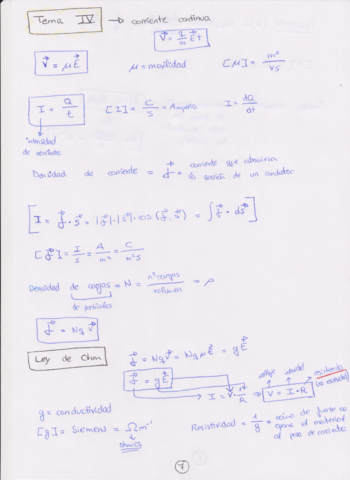 Tema IV → corriente continua
V⃗ = q/m E⃗ t
V⃗ = μE⃗   μ = movilidad   [μ] = m²/Vs
I = Q/t   [I] = C/s = Amperio   I = dQ/dt
intensidad
de corriente
Densidad de corriente = J⃗ = corriente que atraviesa
la sección de un conductor
[I = J⃗ · S⃗ = |J⃗| · |S⃗| · cos(J⃗, S⃗) = ∫ J⃗ · dS⃗]
[J⃗] = I/S = A/m² = C/m²s
Densidad de cargas = N = nº cargas/volumen = ρ
de partículas
J⃗ = Nq V⃗
Ley de Ohm   J⃗ = NqV⃗ = NqμE⃗ = gE⃗
J⃗ = gE⃗   voltaje   intensidad   resistencia
I = V · 1/R ⇒ V = I · R
g = conductividad
[g] = Siemens = Ωm⁻¹
ohmios
Resistividad = 1/g = que opone el material
al paso de corriente
7